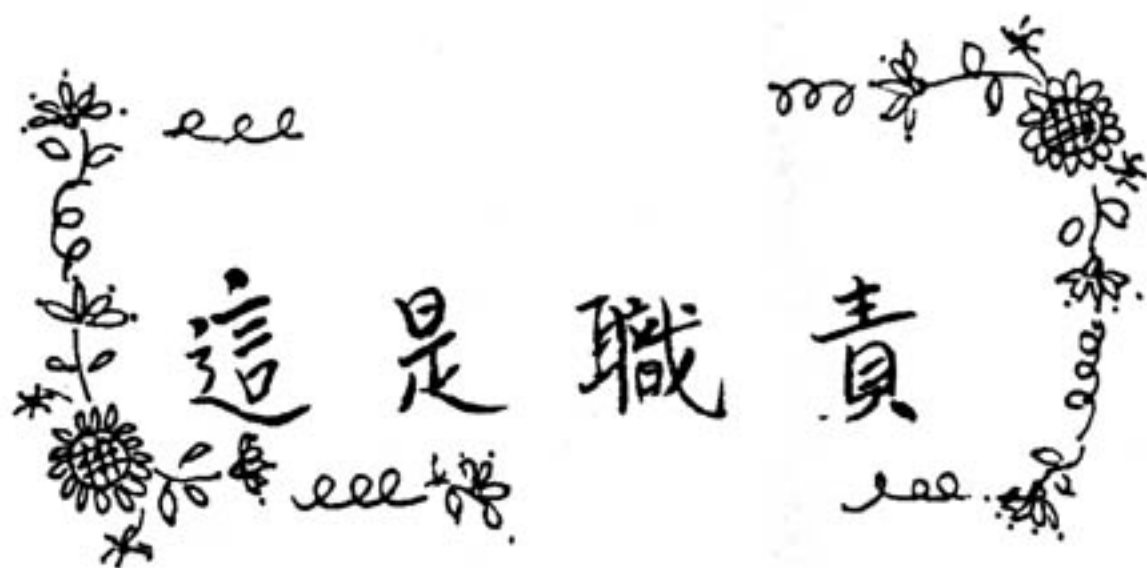 這是職責